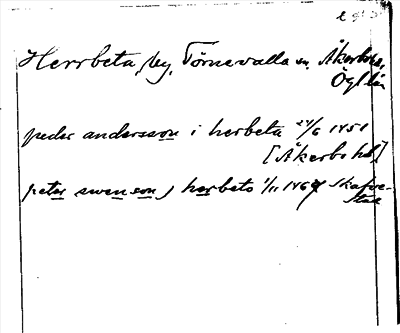 Herrbeta, by, Törnevalla sn, Åkerbo hd,
Ögl län
peder andersson i herbeta 24/6 1451
[Åkerbo hd]
peter swenson j herbeto 1/11 1467 Skafve-
stad